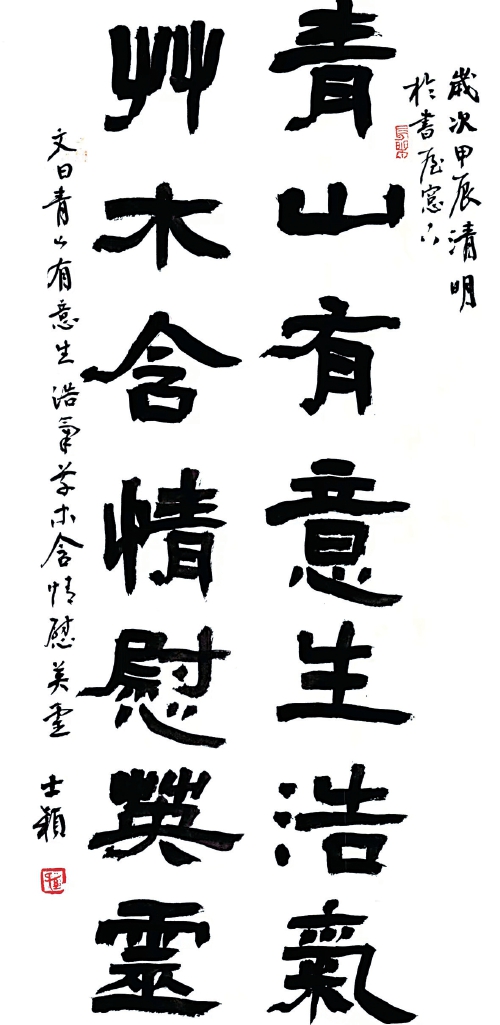 歲次甲辰清明
於書屋窓下
青山有意生浩氣
艸木含情慰英靈
文曰青山有意生浩氣草木含情慰英靈
士穎